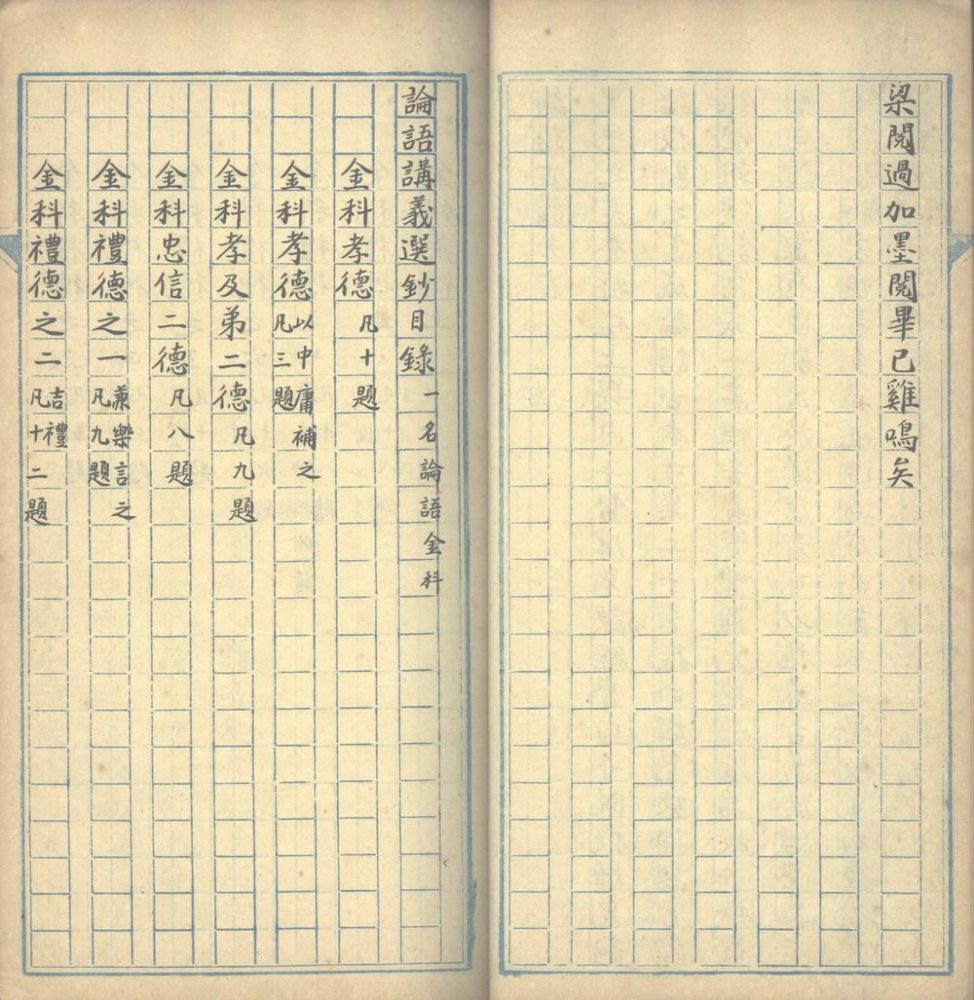 梁閱過加墨閱畢已雞鳴矣
論語講義選鈔目錄一名論語金科
金科孝德凡十題
金科孝德以中庸補之凡三題
金科孝及弟二德凡九題
金科忠信二德凡八題
金科禮德之一兼樂言之凡九題
金科禮德之二吉禮凡十二題